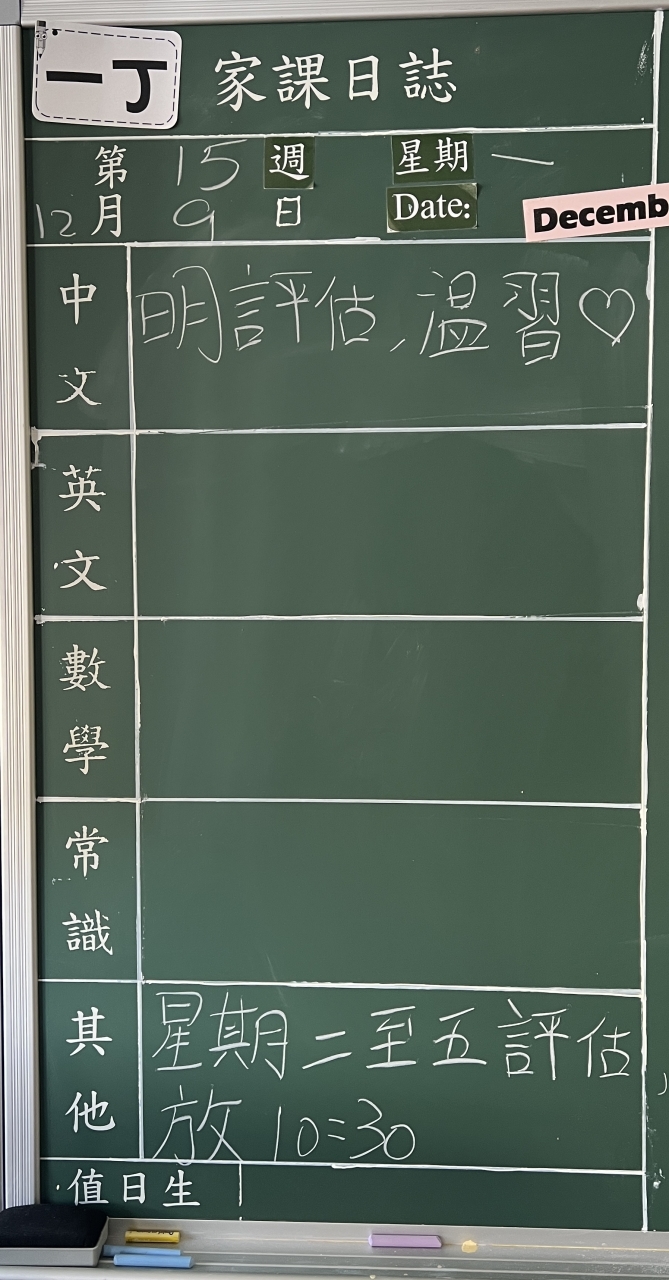 一丁 家課日誌
第 15 週 星期 一
12 月 9 日 Date: Decemb
中文 明評估,溫習♡
英文
數學
常識
其他 星期二至五評估,
放10:30
值日生